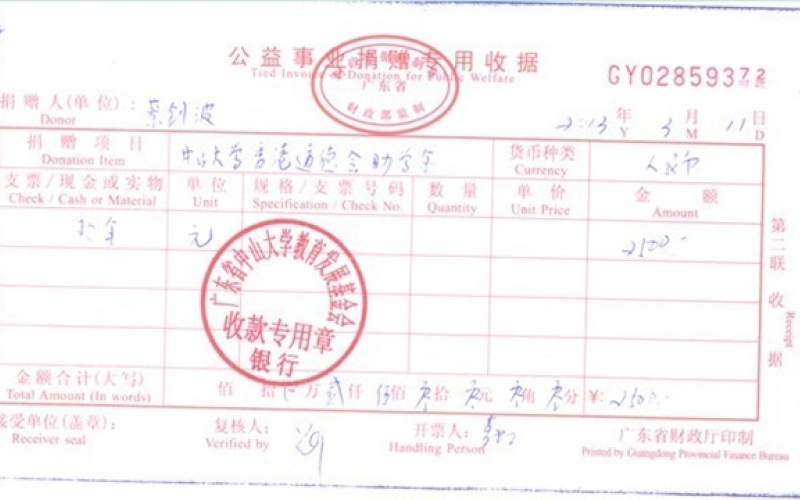 公益事业捐赠专用收据
Tied Invoice Donation for Public Welfare
广东省
财政部监制
GY02859372
捐赠人(单位): 蔡剑波
Donor
2013 年 3 月 11 日
Y M D
捐赠项目 中山大学香港道德会助学金 货币种类 人民币
Donation Item Currency
支票/现金或实物 单位 规格/支票号码 数量 单价 金额
Check / Cash or Material Unit Specification / Check No. Quantity Unit Price Amount
现金 元 2500.-
广东省中山大学教育发展基金会
收款专用章
银行
第二联 收据
Receipt
金额合计(大写) 佰 拾 万 贰仟 伍佰 零拾 零元 零角 零分 ¥: 2500.-
Total Amount (In words)
接受单位(盖章): 复核人: 开票人: 广东省财政厅印制
Receiver seal Verified by Handling Person Printed by Guangdong Provincial Finance Bureau